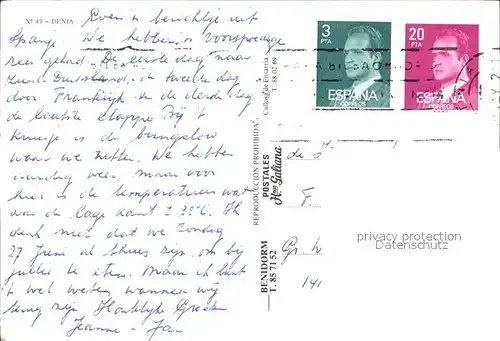 Nº 49 - DENIA
Even 'n berichtje uit
Spanje. We hebben 'n voorspoedige
reis gehad. De eerste dag naar
Zuid-Duitsland, de tweede dag
door Frankrijk en de derde dag
de laatste etappe. Bij 't
kruisje is de bungalow
waar we zitten. We hebben
weer, maar voor
hier is de temperatuur wat
aan de lage kant ± 22°C. Ik
denk niet dat we Zondag
27 Juni al thuis zijn om bij
jullie te eten. Maar ik laat
't wel weten wanneer wij
terug zijn. Hartelijke Groeten
Jeanne - Jan
REPRODUCCION PROHIBIDA
T. 88 02 69
BENIDORM
T. 85 71 52
POSTALES
Hnos Galiana
3
PTA
ESPAÑA
CORREOS
20
PTA
ESPAÑA
CORREOS
de
F.
Gr.
141
privacy protection
Datenschutz